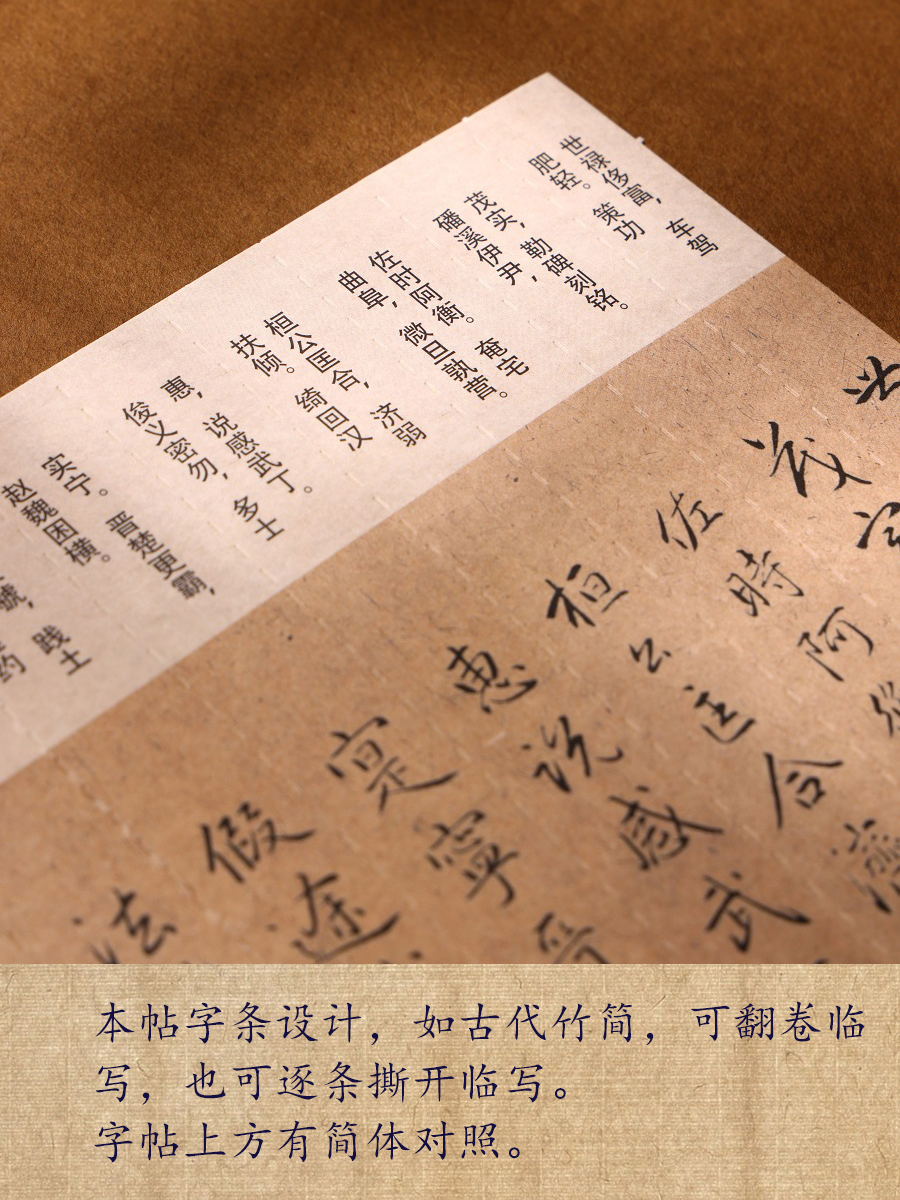 世禄侈富，车驾
肥轻。策功
茂实，勒碑刻铭。
磻溪伊尹，
佐时阿衡。奄宅
曲阜，微旦孰营。
桓公匡合，济弱
扶倾。绮回汉
惠，说感武丁。
俊乂密勿，多士
实宁。晋楚更霸，
赵魏困横。
虢，践土
约
茂
佐時阿
桓公匡合濟
惠説感武
寔寧晉
假途
法
本帖字条设计，如古代竹简，可翻卷临
写，也可逐条撕开临写。
字帖上方有简体对照。